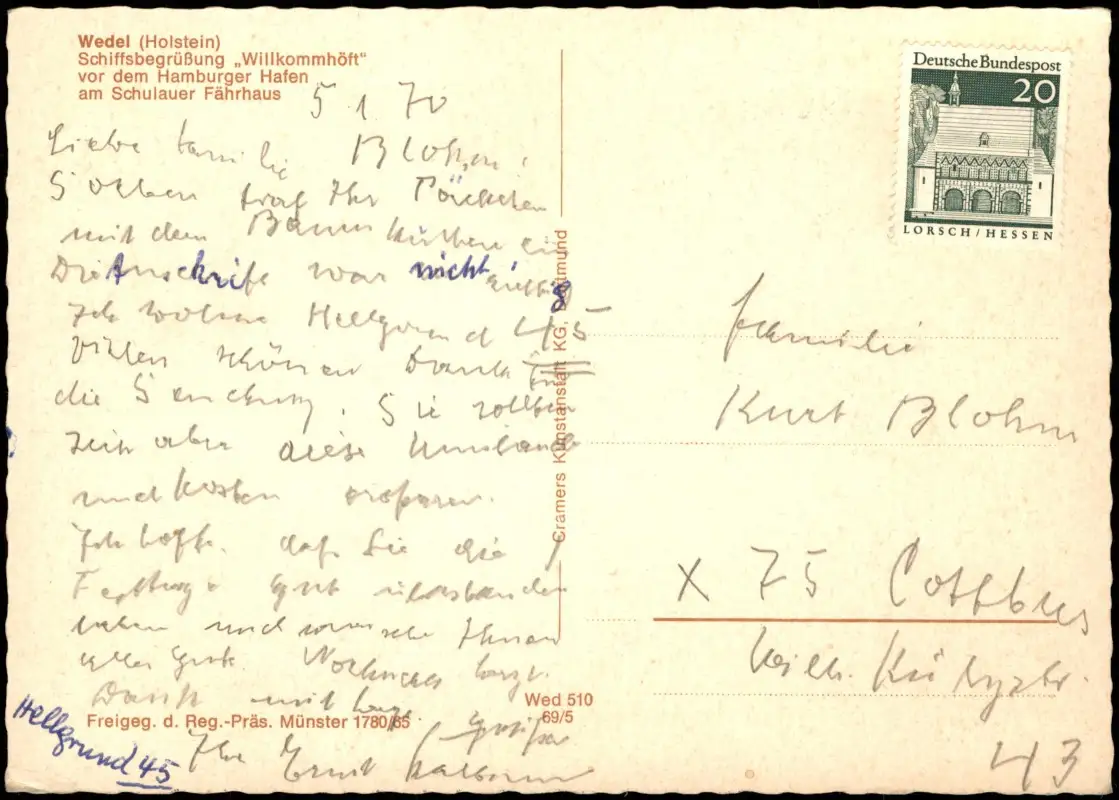 Wedel (Holstein)
Schiffsbegrüßung „Willkommhöft“
vor dem Hamburger Hafen
am Schulauer Fährhaus
5 1 70
Liebe Familie Blohm!
Soeben traf Ihr Päckchen
mit dem Baumkuchen ein
Die Anschrift war nicht richtig
Ich wohne Hellgrund 45
Vielen schönen Dank für
die Sendung. Sie sollten
sich aber diese Umstände
und Kosten ersparen.
Ich hoffe, daß Sie die
Festtage gut überstanden
haben und wünsche Ihnen
alles Gute. Nochmals herzl.
Dank mit
Grüßen
Ihr Ernst
Hellgrund 45
Freigeg. d. Reg.-Präs. Münster 1780/65
Wed 510
69/5
Cramers Kunstanstalt KG, Dortmund
Deutsche Bundespost
20
LORSCH / HESSEN
Familie
Kurt Blohm
X 75 Cottbus
Wilh. Külzstr.
43